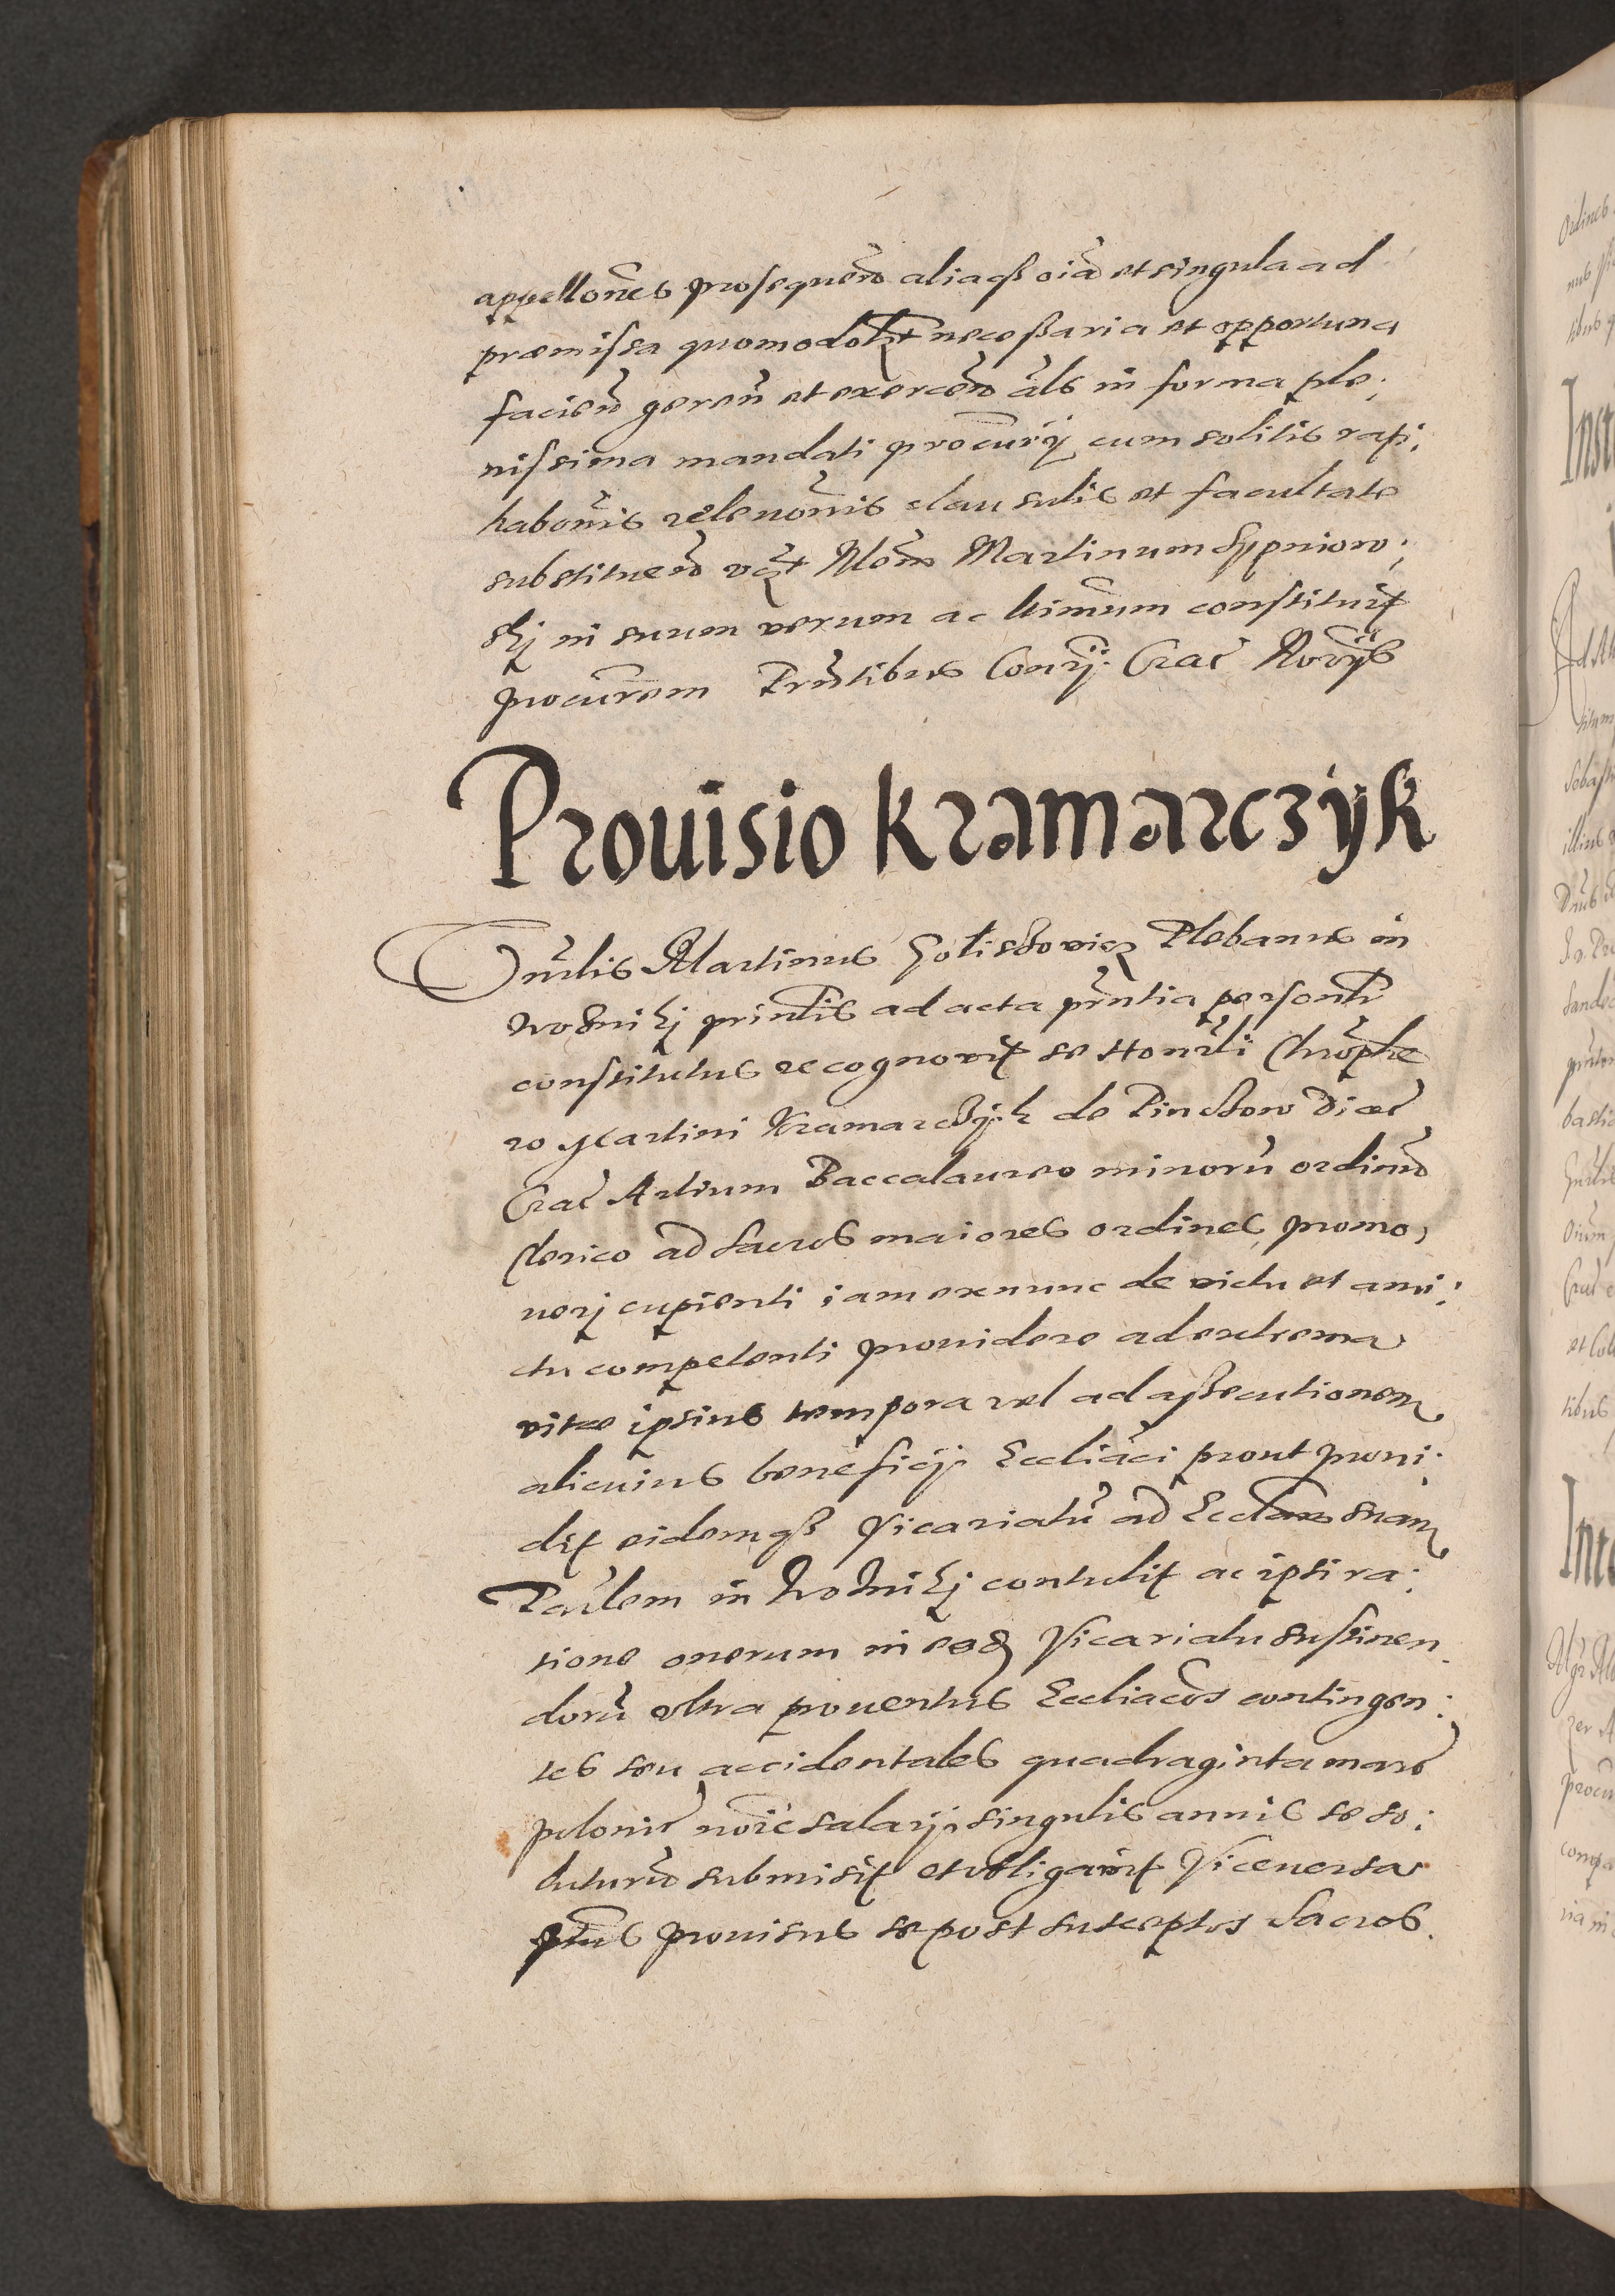 appellones prosequen aliasq oia et singula ad
præmissa quomodolibet necessaria et opportuna
facien geren et exercen als in forma ple;
nissima mandati procurij cum solitis rati;
habonis relevonis clausulis et facultate
substituen Martinum Sypniow;
skj in suum verum ac ltimum constituit
procurem Prntibus Conrij Crac Norijs
Prouisio Kramarczÿk
Martinus Goliskowicz Plebanus in
Wodnikj ad acta prntia personlr
constitutus recognovit se Honrli Chrophe
ro Martini Kramarczyk de Pinczow Dioec
Crac Artium Baccalaureo minorũ ordinũ
Clerico ad Sacros maiores ordines promo,
uerj cupienti iam ex nunc de victu et ami:
ctu competenti prouidere ad extrema
vitæ ipsius tempora vel ad assecutionem
alicuius beneficij Eccliaci prout proui:
dit eidemq Vicariatũ ad Eccliam suam
Parlem in Wodnikj contulit ac ipsi ra:
tione onerum in eod Vicariatu sustinen
dorũ vltra prouentus Eccliacos contingen:
tes seu accidentales quadraginta marc
polonic noie salarij singulis annis se so:
luturũ submisit et obligauit Viceuersa
prouisus se post susceptos Sacros.